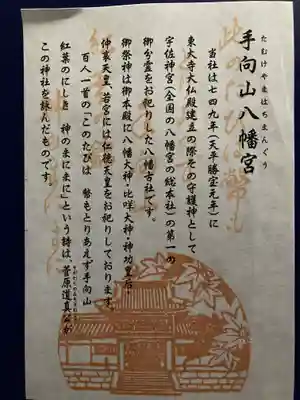 手向山八幡宮
たむけやまはちまんぐう
当社は七四九年（天平勝宝元年）に
東大寺大仏殿建立の際その守護神として
宇佐神宮（全国の八幡宮の総本社）の第一の
御分霊をお祀りした八幡古社です。
御祭神は御本殿に八幡大神・比咩大神・神功皇后・
仲哀天皇、若宮には仁徳天皇をお祀りしております。
百人一首の「このたびは 幣もとりあえず手向山
紅葉のにしき 神のまにまに」という詩は、菅原道真公が
すがわらのみちざねこう
この神社を詠んだものです。